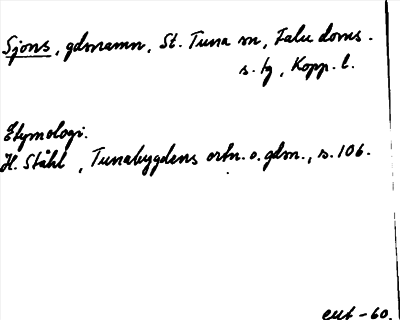 Sjons, gdsnamn, St. Tuna sn, Falu doms.
s. tg, Kopp. l.
Etymologi.
H. Ståhl, Tunabygdens ortn. o. gdsn., s. 106.
-60.